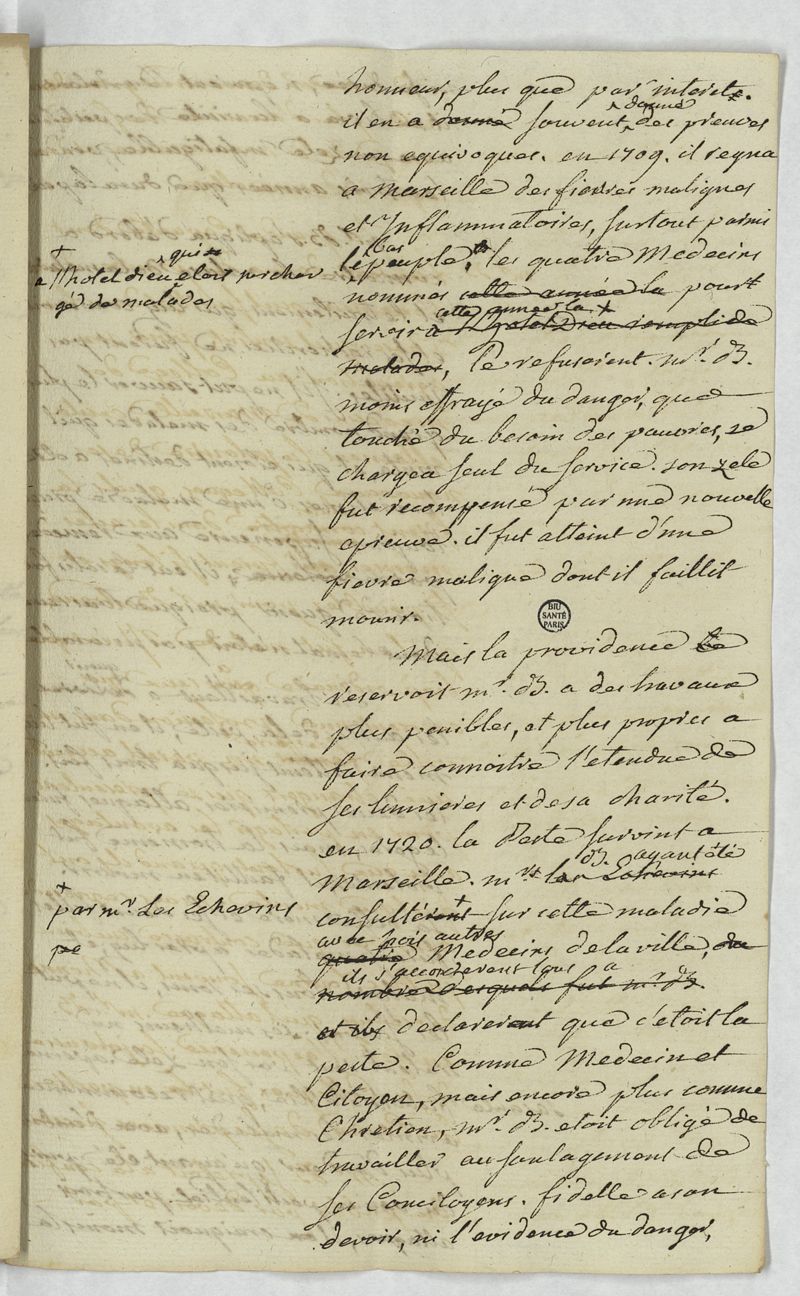 honneur, plus que par interêt.
donné
il en a donné souvent des preuves
non equivoques. en 1709. il regna
a Marseille des fievres malignes
et Inflammatoires, surtout parmi
bas
le peuple, les quatre Medecins
nommés cette année la pour
cette année la +
servir a l'hotel Dieu rempli de
malades, le refuserent. mr. B.
moins effrayé du danger, que
touché du besoin des pauvres, se
chargea seul du service. son zele
fut recompensé par une nouvelle
epreuve. il fut atteint d'une
fievre maligne dont il faillit
mourir.
+
qui
a l'hotel dieu etoit surchar
gé de malades
BIU
SANTÉ
PARIS
Mais la providence le
reservoit mr. B. a des travaux
plus penibles, et plus propres a
faire connoitre l'etendue de
ses lumieres et de sa charité.
en 1720. la Peste survint a
B. ayant été
Marseille. mrs les Echevins
consultérent + sur cette maladie
avec trois autres
quatre Medecins de la ville, du
ils s'accorderent tous a
nombre desquels fut mr. B.
et ils declarerent que c'etoit la
peste. Comme Medecin et
Citoyen, mais encore plus comme
Chretien, mr. B. etoit obligé de
travailler au soulagement de
ses Concitoyens. fidelle a son
devoir, ni l'evidence du danger,
+
par mrs Les Echevins
pe